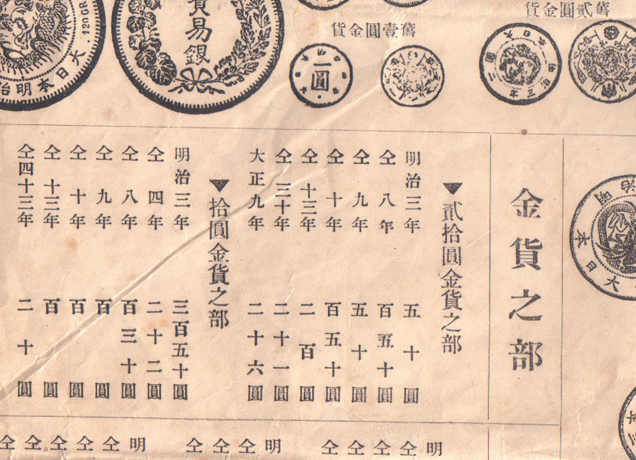 舊貳圓金貨
舊壹圓金貨
一圓
貿易銀
大日本明治
120GR
大日本
明治
金貨之部
▼貳拾圓金貨之部
明治三年 五十圓
仝八年 百五十圓
仝九年 五十圓
仝十年 百五十圓
仝十三年 二百圓
仝三十年 二十一圓
大正九年 二十六圓
▼拾圓金貨之部
明治三年 三百五十圓
仝四年 二十二圓
仝八年 百三十圓
仝九年 百圓
仝十年 百圓
仝十三年 百圓
仝四十三年 二十圓
明
仝
仝
仝
仝
明
仝
仝
仝
明
仝
仝
仝
仝
仝